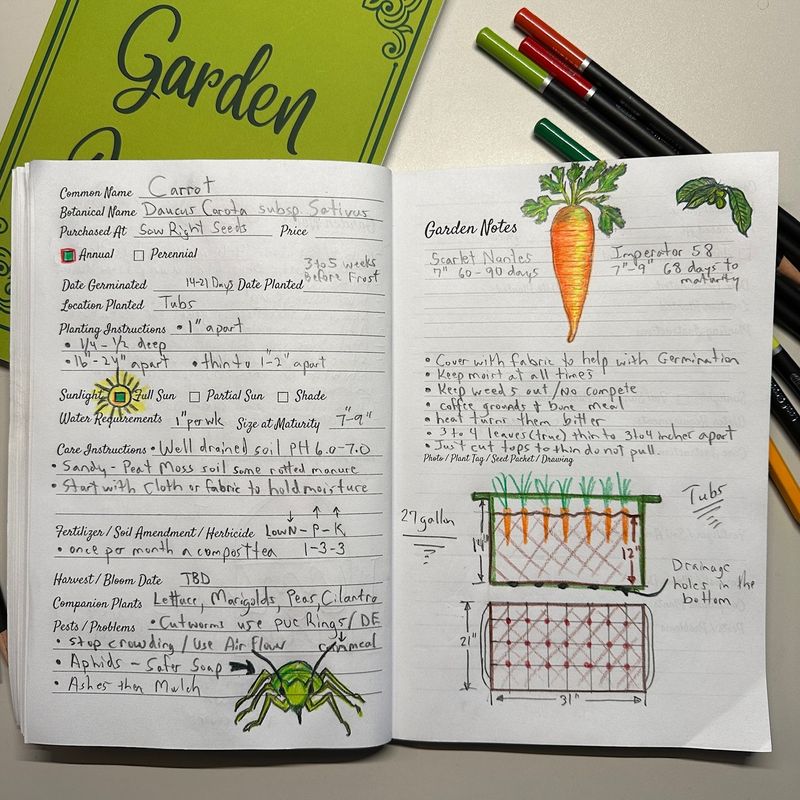 Garden
Common Name Carrot
Botanical Name Daucus Carota subsp. Sativus
Purchased At Sow Right Seeds Price
Annual Perennial
3 to 5 weeks
Before Frost
Date Germinated 14-21 Days Date Planted
Location Planted Tubs
Planting Instructions • 1" apart
• 1/4 - 1/2 deep
• 16"-24" apart • thin to 1-2" apart
Sunlight Full Sun Partial Sun Shade
Water Requirements 1" per wk Size at Maturity 7"-9"
Care Instructions • Well drained soil PH 6.0-7.0
• Sandy - Peat Moss soil some rotted manure
• Start with Cloth or fabric to hold moisture
Fertilizer / Soil Amendment / Herbicide Low N - P - K
• once per month a compost tea 1-3-3
Harvest / Bloom Date TBD
Companion Plants Lettuce, Marigolds, Peas, Cilantro
Pests / Problems • Cutworms use pvc Rings / DE
• stop crowding / Use Air Flow cornmeal
• Aphids - Safer Soap
• Ashes then Mulch
Garden Notes
Scarlet Nantes Imperator 58
7" 60-90 days 7"-9" 68 days to
maturity
• Cover with fabric to help with Germination
• Keep moist at all times
• Keep weeds out / No compete
• coffee grounds & bone meal
• heat turns them bitter
• 3 to 4 leaves (true) thin to 3 to 4 inches apart
• Just cut tops to thin do not pull
Photo / Plant Tag / Seed Packet / Drawing
27 gallon
Tubs
14"
12"
Drainage
holes in the
bottom
21"
31"